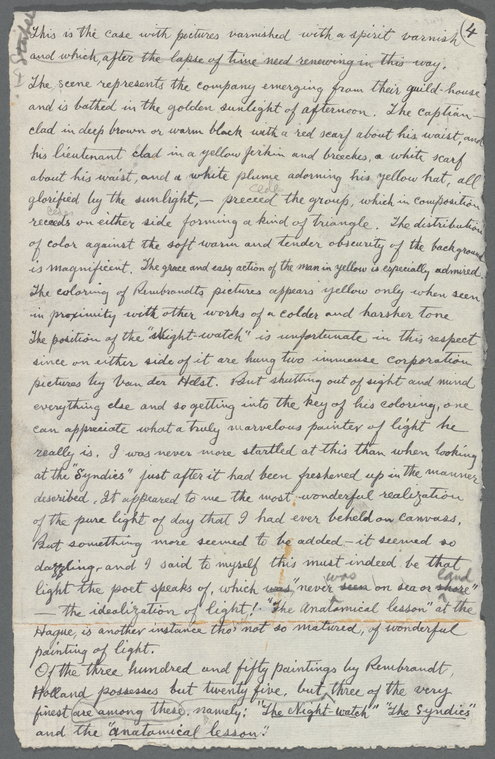 This is the case with pictures varnished with a spirit varnish 4
and which, after the lapse of time need renewing in this way.
The scene represents the company emerging from their guild-house
and is bathed in the golden sunlight of afternoon. The captian—
clad in deep brown or warm black with a red scarf about his waist, and
his lieutenant clad in a yellow jirkin and breeches, a white scarf
about his waist, and a white plume adorning his yellow hat, all
cede
glorified by the sunlight,— preceed the group, which in composition
cedes
receeds on either side forming a kind of triangle. The distribution
of color against the soft warm and tender obscurity of the background
is magnificent. The grace and easy action of the man in yellow is especially admired.
The coloring of Rembrandts pictures appears yellow only when seen
in proximity with other works of a colder and harsher tone
The position of the "Night-watch" is unfortunate in this respect
since on either side of it are hung two immense corporation
pictures by Van der Helst. But shutting out of sight and mind
everything else and so getting into the key of his coloring, one
can appreciate what a truly marvelous painter of light he
really is. I was never more startled at this than when looking
at the "Syndics" just after it had been freshened up in the manner
described. It appeared to me the most wonderful realization
of the pure light of day that I had ever beheld on canvass.
But something more seemed to be added – it seemed so
dazzling, and I said to myself this must indeed be that
was land
light the poet speaks of, which was "never seen on sea or shore"
— the idealization of light! "The Anatomical lesson" at the
Hague, is another instance tho' not so matured, of wonderful
painting of light.
Of the three hundred and fifty paintings by Rembrandt,
Holland possesses but twenty five, but three of the very
finest are among these, namely: "The Night-watch" "The Syndics"
and the "anatomical lesson".